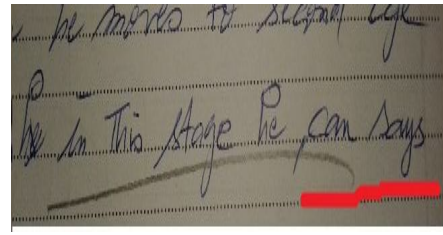 he moves to second age
he in This stage he can says